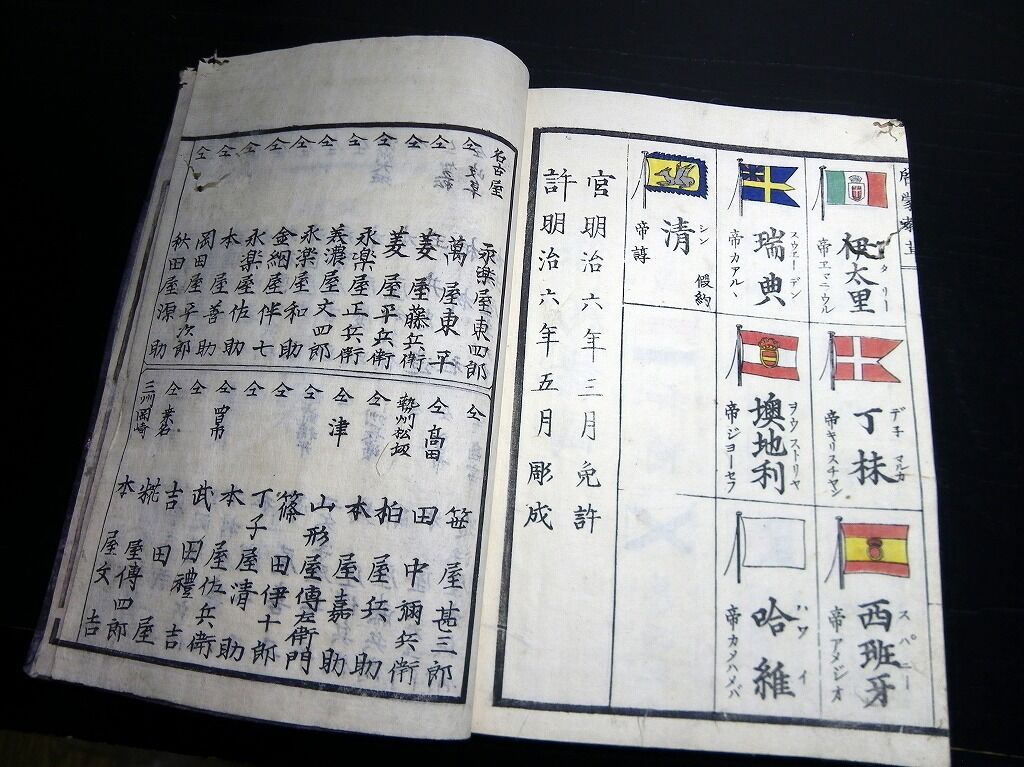 伊太里
イタリー
帝エマニウル
丁抹
デ子マルカ
帝キリスチヤン
西班牙
スパニー
帝アメジオ
瑞典
スウェーデン
帝カアルヽ
墺地利
ヲウストリヤ
帝ジヨーセフ
哈維
ハワイ
帝カメハメバ
清
シン
假約
帝諄
官明治六年三月免許
許明治六年五月彫成
名古屋 永樂屋東四郎
仝 萬屋東平
仝 菱屋藤兵衛
仝 菱屋平兵衛
仝 永樂屋正兵衛
仝 美濃屋文四郎
仝 永樂屋和助
仝 金網屋伴七
仝 永樂屋佐助
仝 本屋善助
仝 岡田屋平次郎
仝 秋田屋源助
仝 笹屋甚三郎
仝高田 田中彌兵衛
勢州松坂 柏屋兵助
仝津 本屋嘉助
仝 山形屋傳右衛門
仝 篠田伊十郎
仝 丁子屋清助
仝 本屋佐兵衛
仝 武田禮
吉田吉
仝桑名 糀屋傳四郎
三州岡崎 本屋文吉